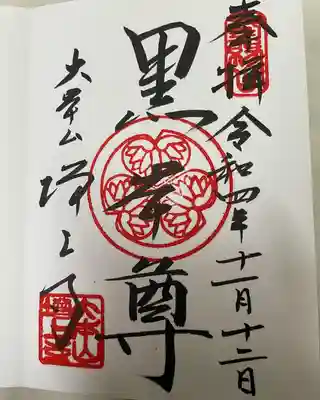 奉拝
令和四年十一月十二日
黒本尊
大本山
増上寺
大本山
増上寺